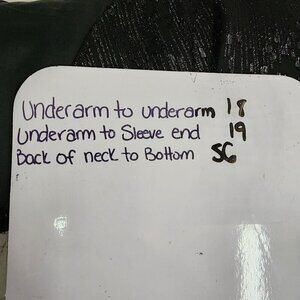 Underarm to underarm 18
Underarm to Sleeve end 19
Back of neck to Bottom 56